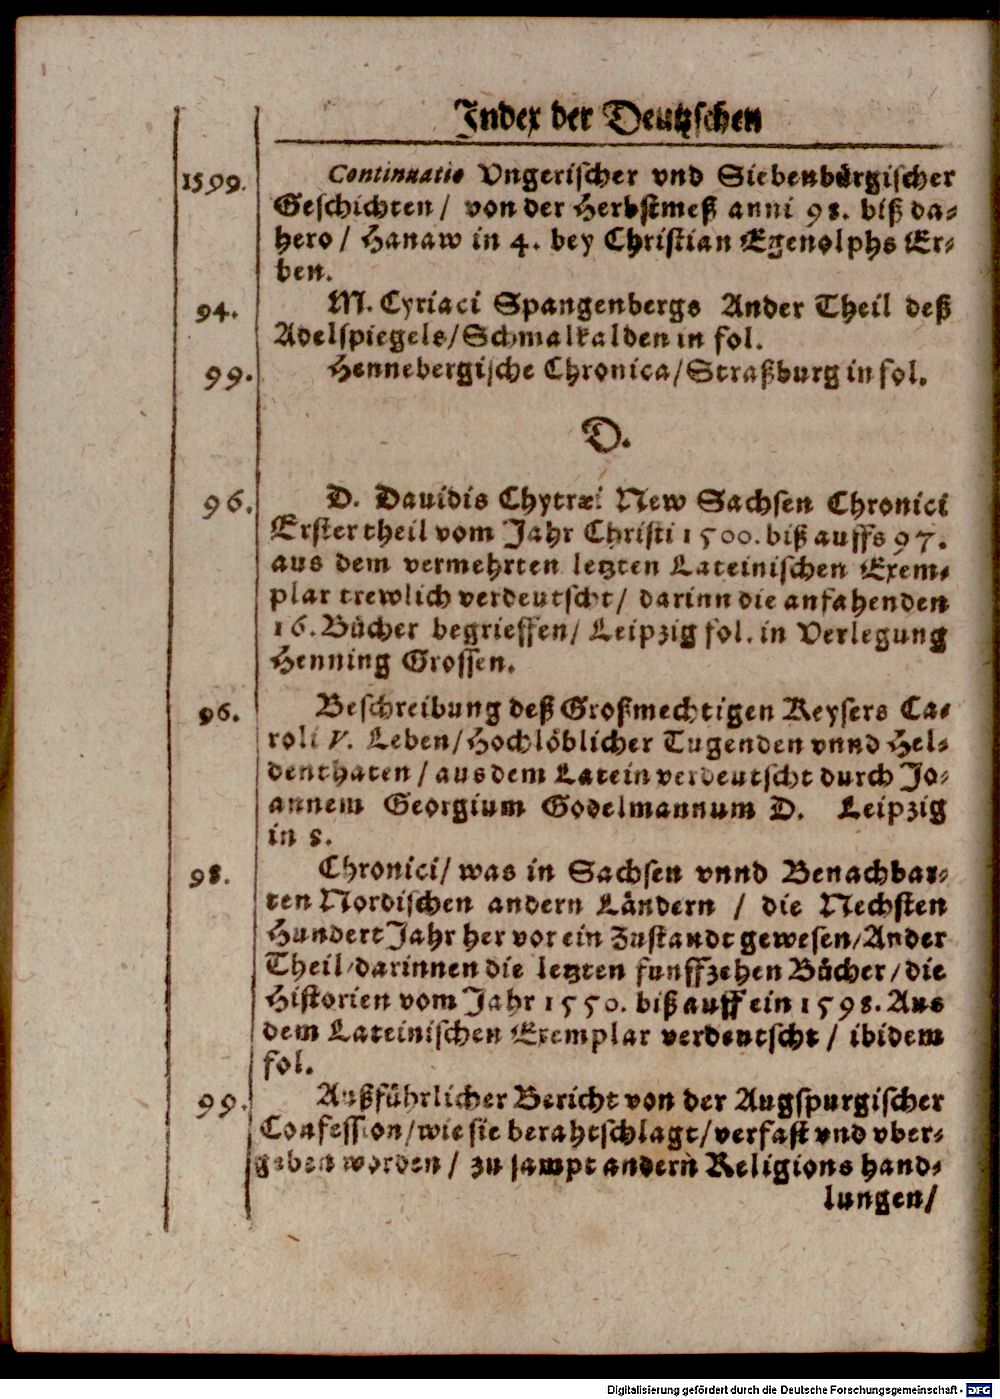 Index der Deutzschen
1599. Continuatio Vngerischer vnd Siebenbürgischer
Geschichten / von der Herbstmeß anni 98. biß da-
hero / Hanaw in 4. bey Christian Egenolphs Er-
ben.
94. M. Cyriaci Spangenbergs Ander Theil deß
Adelspiegels / Schmalkalden in fol.
99. Hennebergische Chronica / Straßburg in fol.
D.
96. D. Dauidis Chytræi New Sachsen Chronici
Erster theil vom Jahr Christi 1500. biß auffs 97.
aus dem vermehrten letzten Lateinischen Exem-
plar trewlich verdeutscht / darinn die anfahenden
16. Bücher begrieffen / Leipzig fol. in Verlegung
Henning Grossen.
96. Beschreibung deß Großmechtigen Keysers Ca-
roli V. Leben / Hochlöblicher Tugenden vnnd Hel-
denthaten / aus dem Latein verdeutscht durch Jo-
annem Georgium Godelmannum D. Leipzig
in 8.
98. Chronici / was in Sachsen vnnd Benachbar-
ten Nordischen andern Ländern / die Nechsten
Hundert Jahr her vor ein Zustandt gewesen / Ander
Theil / darinnen die letzten funffzehen Bücher / die
Historien vom Jahr 1550. biß auff ein 1598. Aus
dem Lateinischen Exemplar verdeutscht / ibidem
fol.
99. Außführlicher Bericht von der Augspurgischer
Confession / wie sie berahtschlagt / verfast vnd vber-
geben worden / zu sampt andern Religions hand-
lungen /
Digitalisierung gefördert durch die Deutsche Forschungsgemeinschaft - DFG